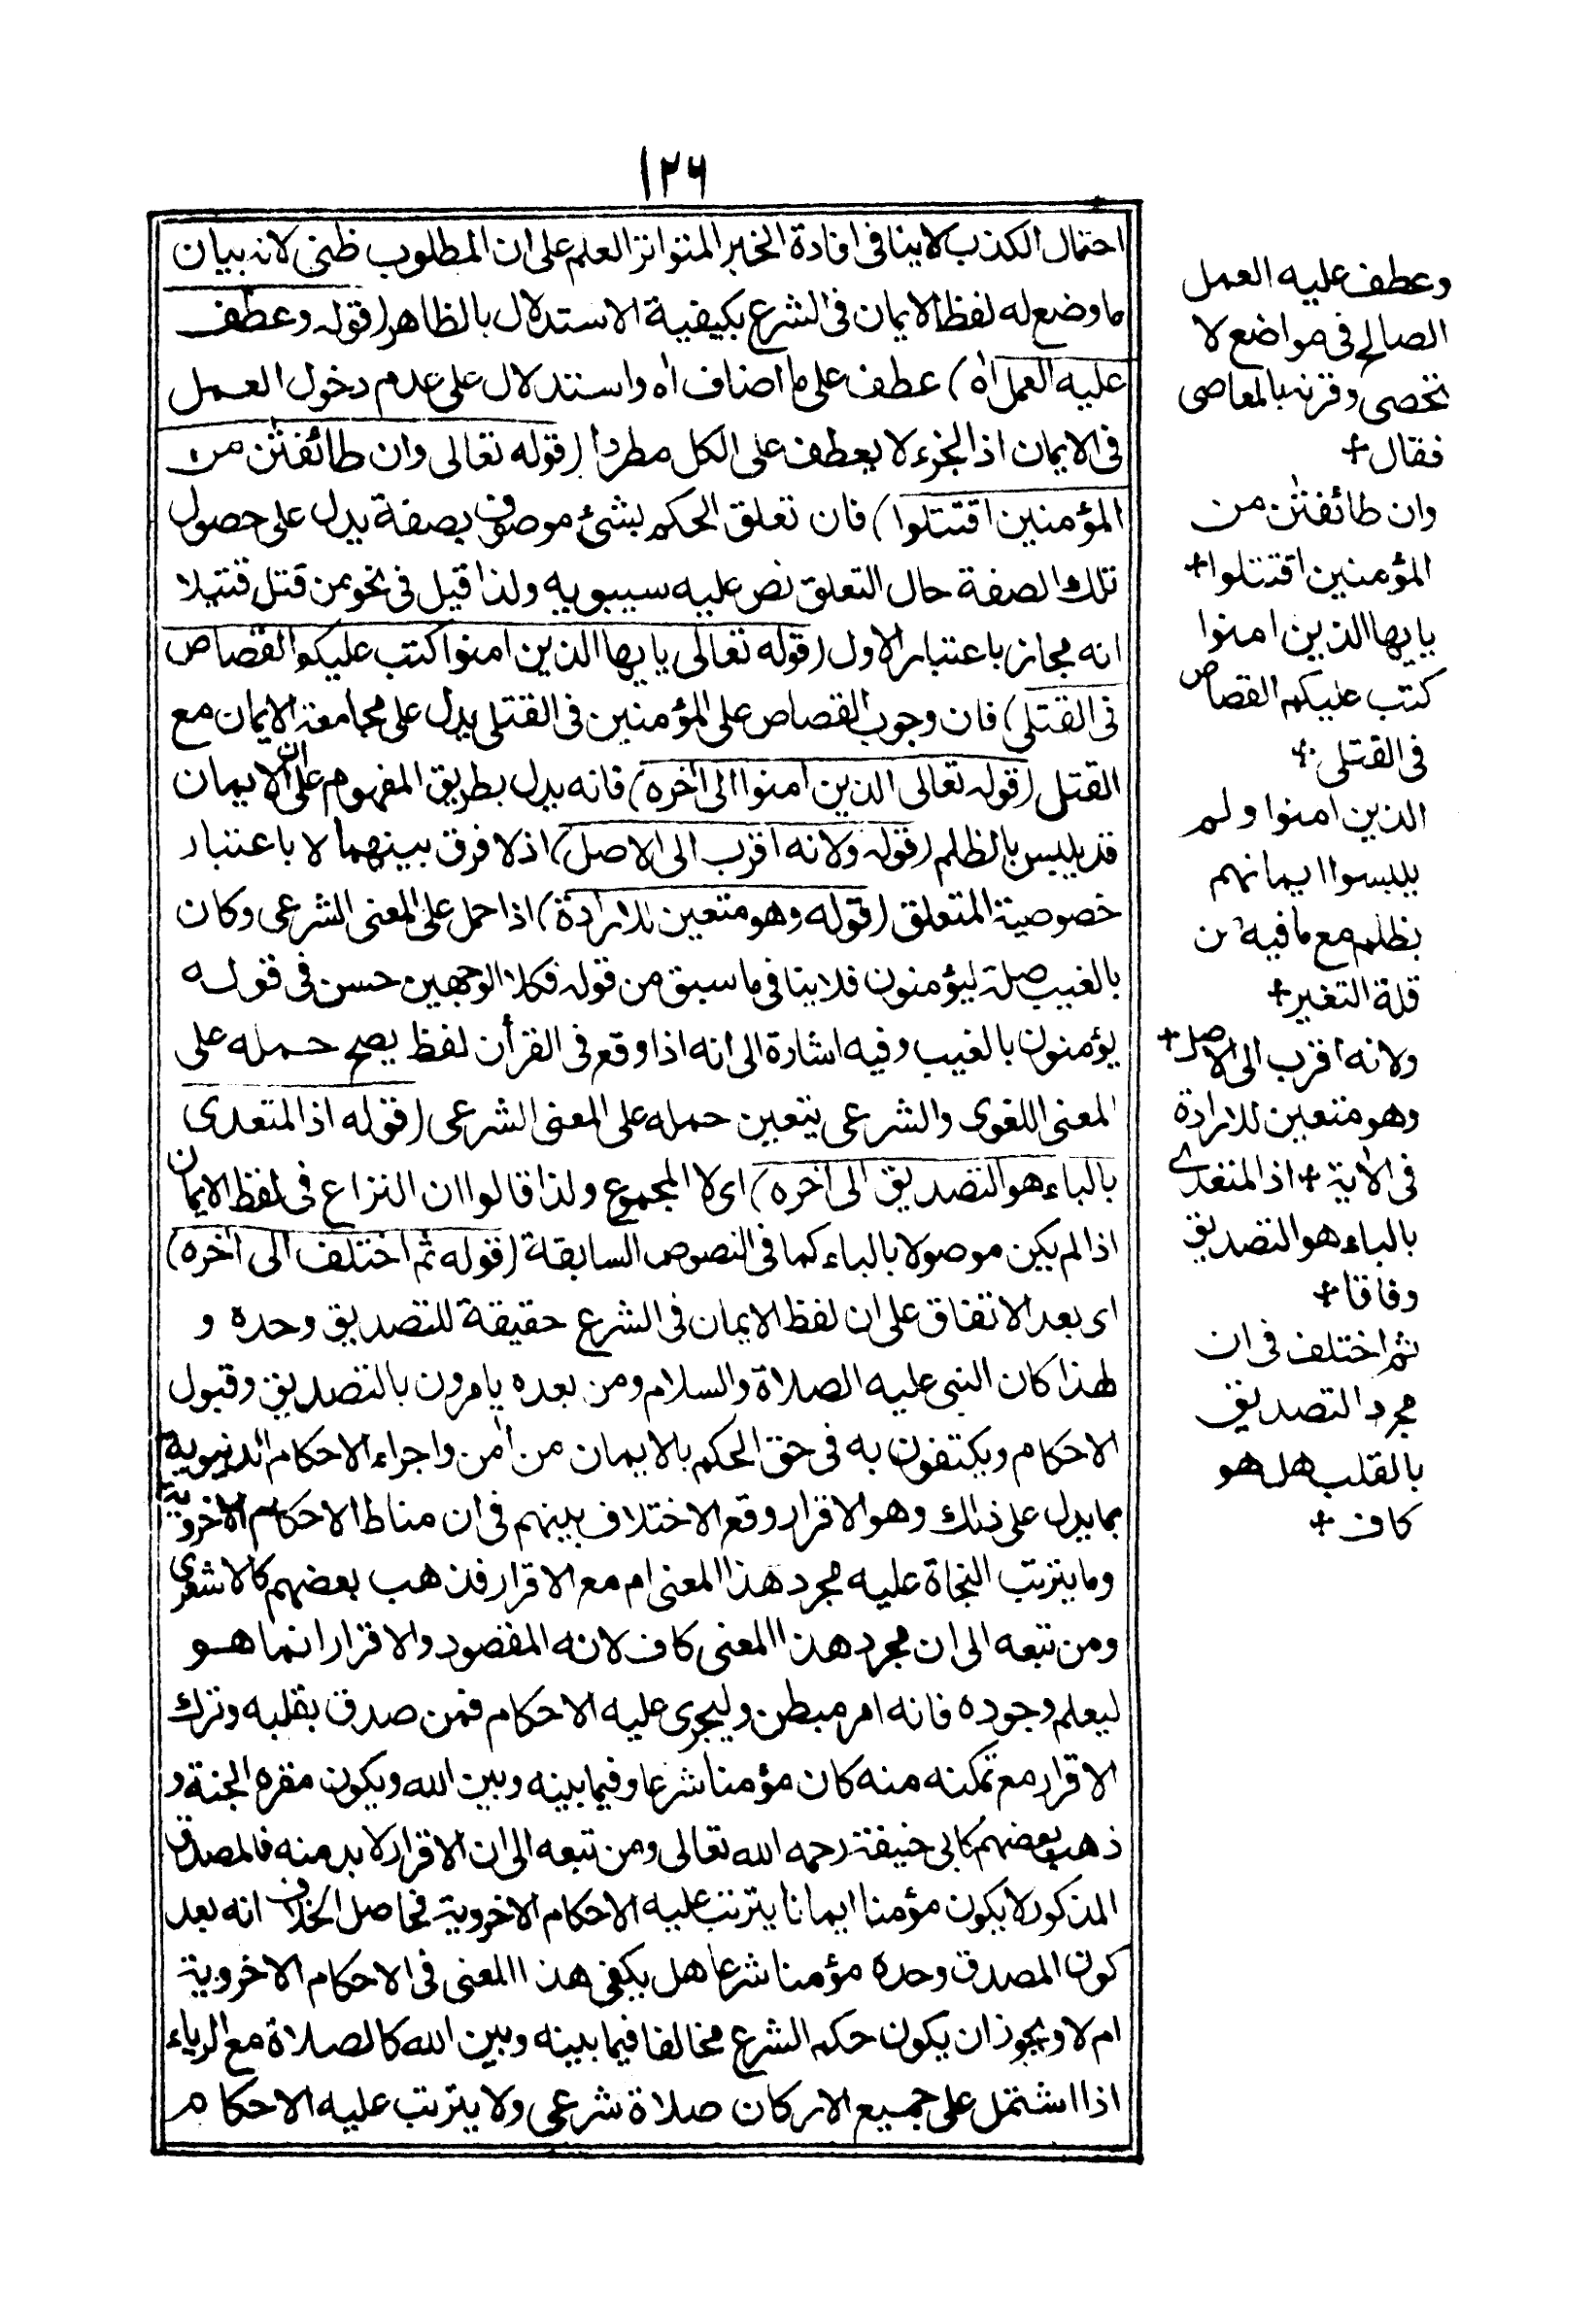 ١٢٦
احتمال الكذب لا ينافى افادة الخبر المتواتر العلم على ان المطلوب ظنى لانه بيان
ما وضع له لفظ الايمان فى الشرع بكيفية الاستدلال بالظاهر (قوله وعطف
عليه العمل اه) عطف على ما اضاف اه واستدلال على عدم دخول العمل
فى الايمان اذ الجزء لا يعطف على الكل مطردا (قوله تعالى وان طائفتٰن من
المؤمنين اقتتلوا) فان تعلق الحكم بشئ موصوف بصفة يدل على حصول
تلك الصفة حال التعلق نص عليه سيبويه ولذا قيل فى نحو من قتل قتيلا
انه مجاز باعتبار الاول (قوله تعالى يايها الذين امنوا كتب عليكم القصاص
فى القتلى) فان وجوب القصاص على المؤمنين فى القتلى يدل على مجامعة الايمان مع
القتل (قوله تعالى الذين امنوا الى اخره) فانه يدل بطريق المفهوم على ان الايمان
قد يلبس بالظلم (قوله ولانه اقرب الى الاصل) اذ لا فرق بينهما لا باعتبار
خصوصية المتعلق (قوله وهو متعين للارادة) اذا حمل على المعنى الشرعى وكان
بالغيب صلة ليؤمنون فلا ينافى ما سبق من قوله فكلا الوجهين حسن فى قوله
يؤمنون بالغيب وفيه اشارة الى انه اذا وقع فى القرأن لفظ يصح حمله على
المعنى اللغوى والشرعى يتعين حمله على المعنى الشرعى (قوله اذ المتعدى
بالباء هو التصديق الى اخره) اى لا المجموع ولذا قالوا ان النزاع فى لفظ الايمان
اذا لم يكن موصولا بالباء كما فى النصوص السابقة (قوله ثم اختلف الى اخره)
اى بعد الاتفاق على ان لفظ الايمان فى الشرع حقيقة للتصديق وحده و
لهذا كان النبى عليه الصلاة والسلام ومن بعده يامرون بالتصديق وقبول
الاحكام ويكتفون به فى حق الحكم بالايمان من أمن واجراء الاحكام الدنيوية
بما يدل على ذلك وهو الاقرار وقع الاختلاف بينهم فى ان مناط الاحكام الاخروية
وما يترتب النجاة عليه مجرد هذا المعنى ام مع الاقرار فذهب بعضهم كالاشعرى
ومن تبعه الى ان مجرد هذا المعنى كاف لانه المقصود والاقرار انما هو
ليعلم وجوده فانه امر مبطن وليجرى عليه الاحكام فمن صدق بقلبه وترك
الاقرار مع تمكنه منه كان مؤمنا شرعا وفيما بينه وبين الله ويكون مقره الجنة و
ذهب بعضهم كابى حنيفة رحمه الله تعالى ومن تبعه الى ان الاقرار لا بد منه فالمصدق
المذكور لا يكون مؤمنا ايمانا يترتب عليه الاحكام الاخروية فحاصل الخلاف انه بعد
كون المصدق وحده مؤمنا شرعا هل يكفى هذا المعنى فى الاحكام الاخروية
ام لا ويجوز ان يكون حكم الشرع مخالفا فيما بينه وبين الله كالصلاة مع الرياء
اذا اشتمل على جميع الاركان صلاة شرعى ولا يترتب عليه الاحكام
وعطف عليه العمل
الصالح فى مواضع لا
تحصى وقرنه بالمعاصى
فقال +
وان طائفتٰن من
المؤمنين اقتتلوا +
يايها الذين امنوا
كتب عليكم القصاص
فى القتلى +
الذين امنوا ولم
يلبسوا ايمانهم
بظلم مع ما فيه من
قلة التغير +
ولانه اقرب الى الاصل +
وهو متعين للارادة
فى الاية + اذ المتعدى
بالباء هو التصديق
وفاقا +
ثم اختلف فى ان
مجرد التصديق
بالقلب هل هو
كاف +